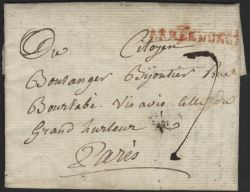 Du Citoyen
Boulanger Bijoutier Rue
Bourlabé vis avis celle du
Grand hurleur
Paris